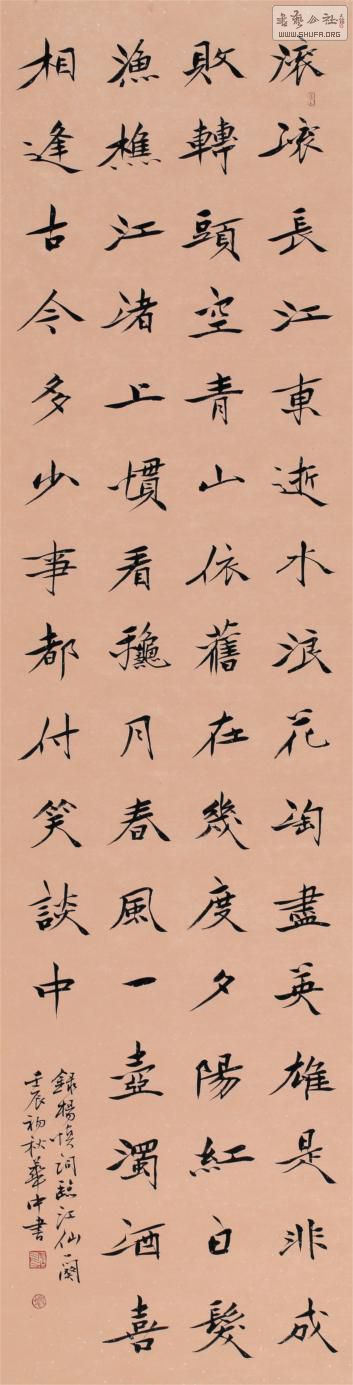 書藝公社
WWW.SHUFA.ORG
滚滚長江東逝水浪花淘盡英雄是非成
敗轉頭空青山依舊在幾度夕陽紅白髮
漁樵江渚上慣看龝月春風一壺濁酒喜
相逢古今多少事都付笑談中
錄楊慎詞臨江仙一闋
壬辰初秋華中書